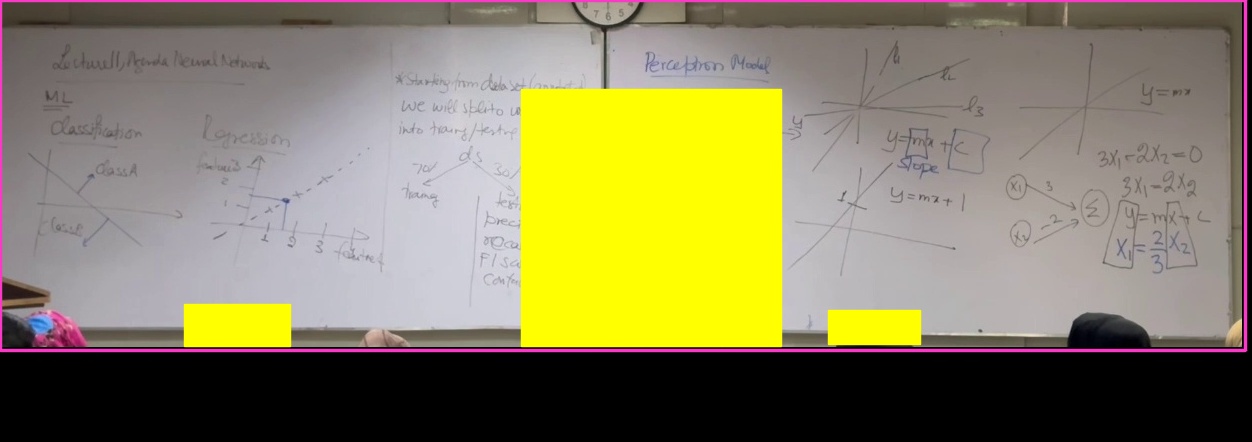 Lecture11, Agenda Neural Network
ML
Classification
class A
Regression
feature2
2
1
1 2 3
feature1
*Starting from dataset
we will split
into traing/
ds
70%
traing
30/
F1
Perceptron Model
y
l1
l2
l3
y=mx+C
slope
1
y=mx+1
y=mx
3x1-2x2=0
3x1=2x2
x1
3
x2
-2
Σ
y=mx+c
x1=2/3 x2